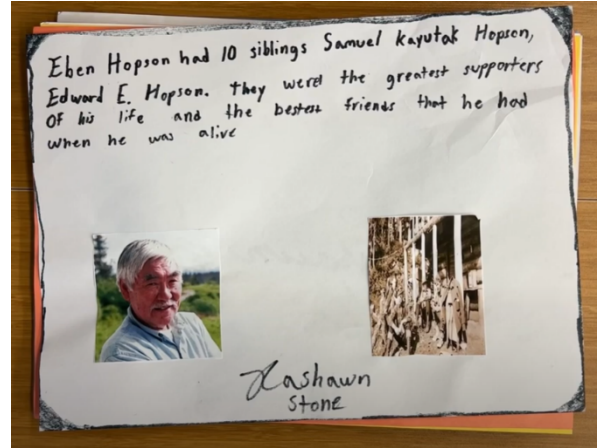 Eben Hopson had 10 siblings Samuel Kayutak Hopson,
Edward E. Hopson. they werer the greatest supporters
Of his life and the bestest friends that he had
when he was alive
Kashawn
Stone